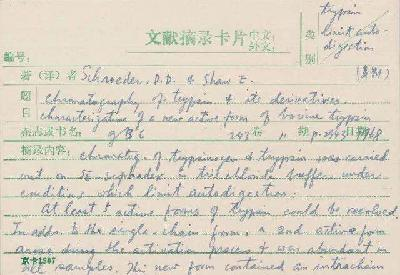 trypsin
文献摘录卡片 中文: 类 limit auto
外文: 别 digestion
编号:
著(译)者 Schroeder, D.D. & Shaw E.
题 Chromatography of trypsin & its derivatives.
目 Characterization of a new active form of bovine trypsin
杂志或书名: JBC 243 卷 期 p.2943 日期 1968
摘录内容: chromatog. of trypsinogen & trypsin was carried
out on SE-sephadex in tris chloride buffers under
conditions which limit autodigestion.
At least active forms of trypsin could be resolved.
In addn. to the single-chain form, a 2nd active form
arose during the activation process & was abundant in
all samples. This new form contained an intrachain
京卡1507